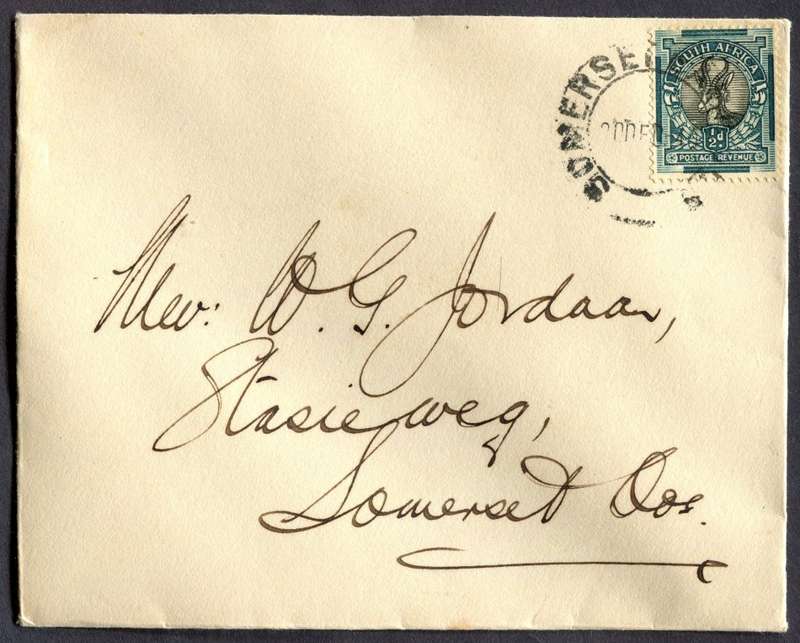 SOMERSE
SOUTH AFRICA
½d
POSTAGE REVENUE
Mev: W. G. Jordaan,
Stasieweg,
Somerset Oos.